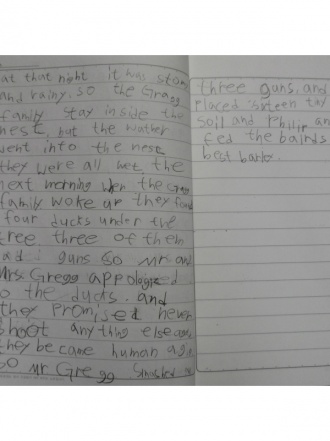 at that night it was stom
and rainy, so the Gragg
family stay inside the
nest, but the wather
went into the nest
they were all wet, the
next morning wen the Gragg
family woke up they fond
four ducts under the
tree three of them
had guns so Mr and
Mrs. Gregg appologized
to the ducts. and
they promised never
shoot any thing else
they became human again
so Mr Gregg Smashed
three guns, and
placed sixteen tay
soil and Philip an
fed the bairds
best barley.